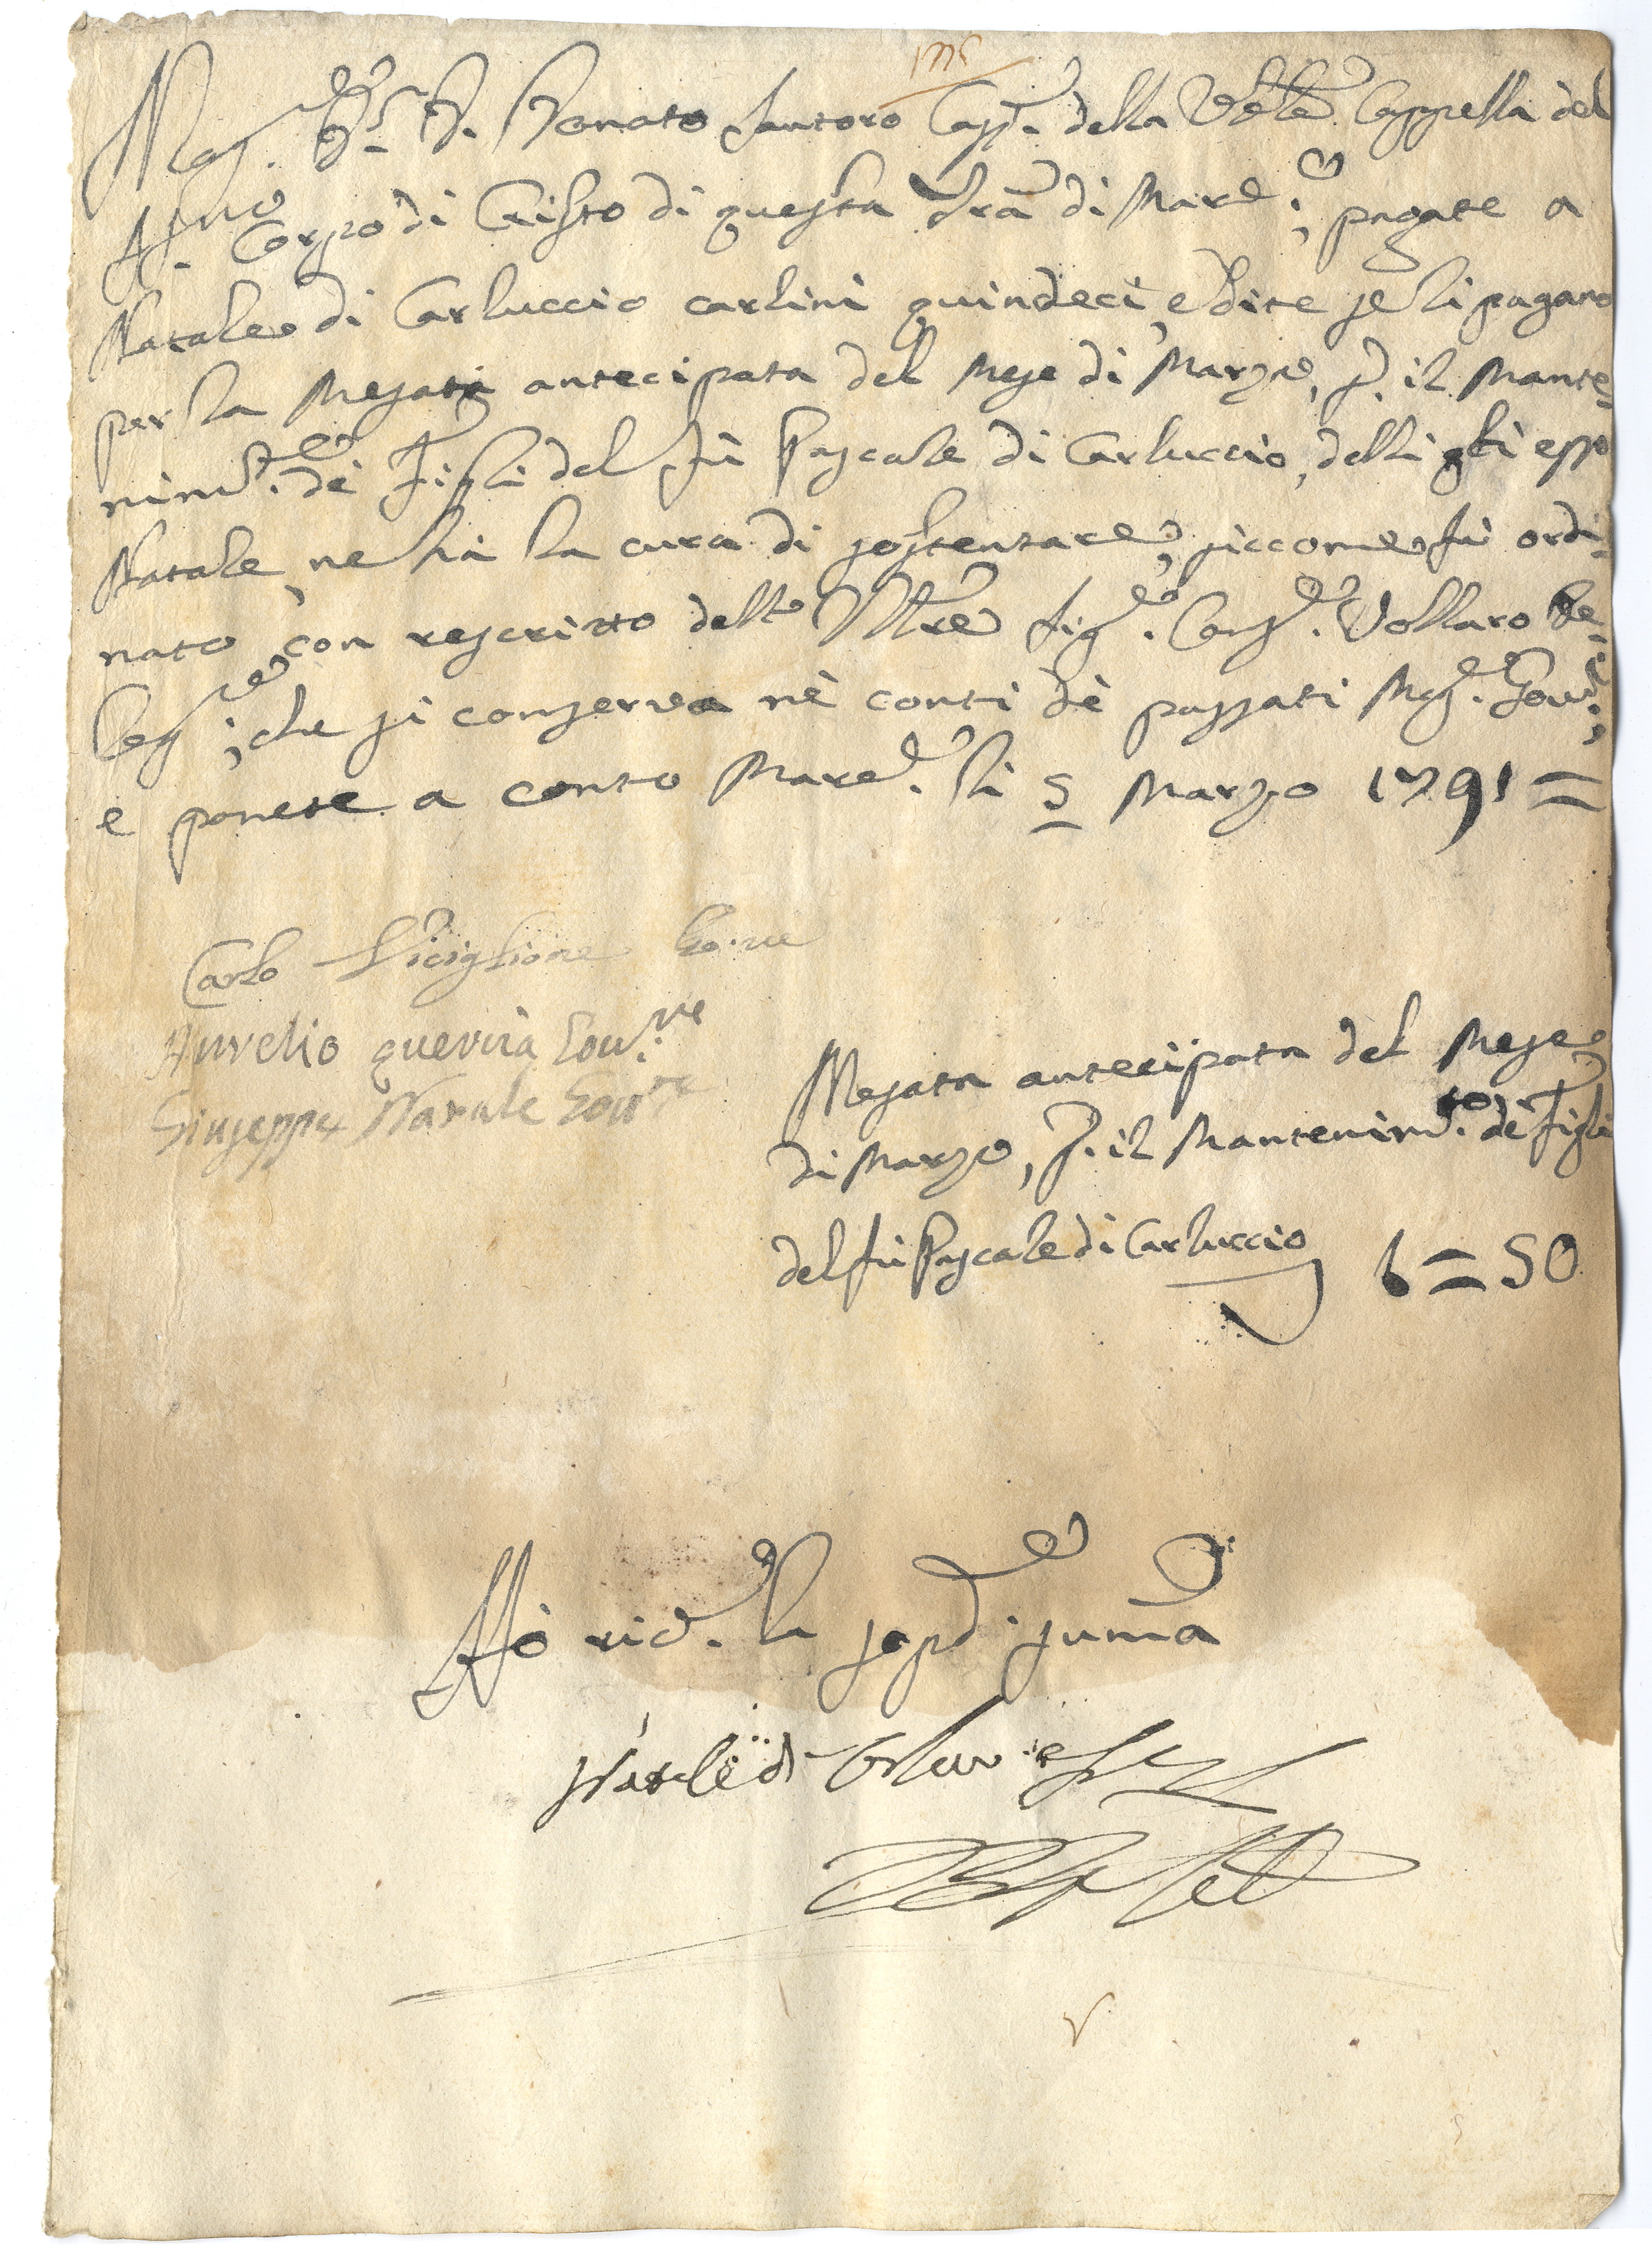 Mag. D.r D. Donato Santoro Capp. della Ven.le Cappella del
SS.mo Corpo di Cristo di questa Terra di Mared.; pagate a
Natale di Carluccio carlini quindeci, e dite se li pagano
per la Mesata antecipata del Mese di Marzo, p. il Mante-
nim.to de Figli del fù Pascale di Carluccio, delli qli esso
Natale, ne hà la cura di sostentare; siccome fù ordi-
nato con rescritto dell' Ill.re Sig. Cons. Vollaro De-
leg.to; che si conserva nè conti dè passati Mag. Gov.ri;
e ponete a conto Mared. li 5 Marzo 1791 =
Carlo Siciglione Go.re
Aurelio guerria Gov.re
Giuseppe Natale Gov.re
Mesata antecipata del Mese
di Marzo, p. il Mantenim.to de Figli
del fù Pascale di Carluccio 1 = 50
Hò ric. la sopd. suma
Natale di